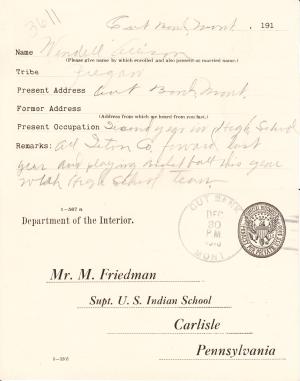 3611
Cut Bank, Mont. 191
Name Wendell Allison
(Please give name by which enrolled and also present or married name.)
Tribe Piegan
Present Address Cut Bank, Mont.
Former Address
(Address from which we heard from you last.)
Present Occupation Second year in High School
Remarks: All Teton Co. forward last
year and playing basketball this year
with High School Team.
5—567 a
Department of the Interior.
CUT BANK
DEC
30
P M
MONT.
Mr. M. Friedman
Supt. U. S. Indian School
Carlisle
Pennsylvania